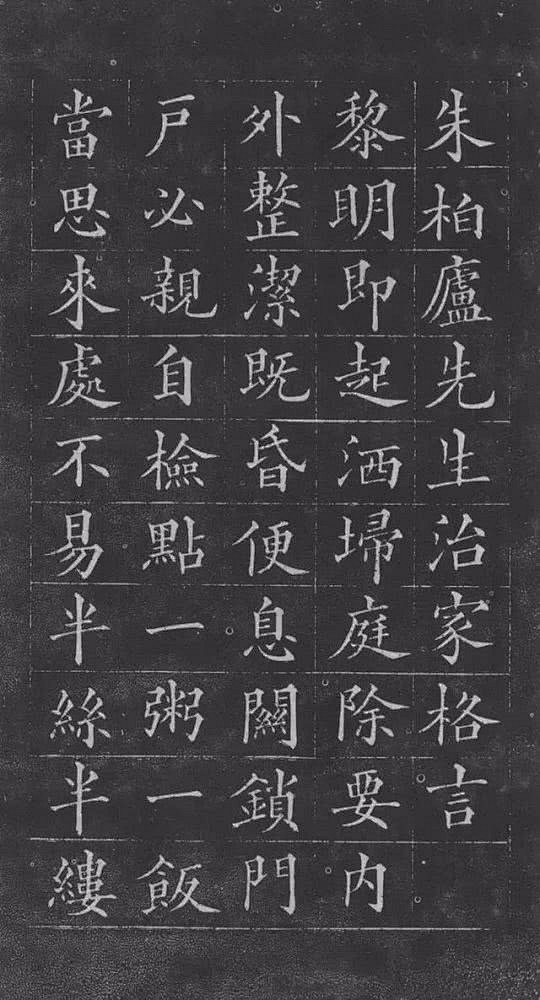 朱柏廬先生治家格言
黎明即起洒埽庭除要内
外整潔既昏便息關鎖門
戸必親自檢點一粥一飯
當思來處不易半絲半縷